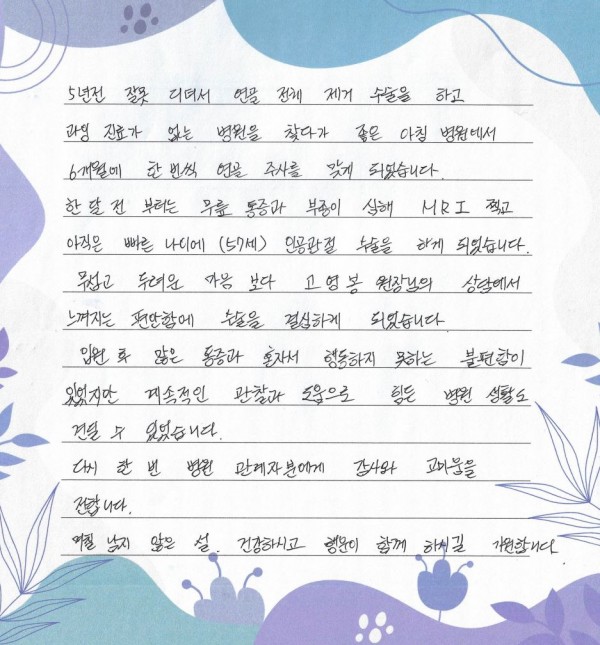 5년전 잘못 디뎌서 연골 전체 제거 수술을 하고
과잉 진료가 없는 병원을 찾다가 좋은 아침 병원에서
6개월에 한 번씩 연골 주사를 맞게 되었습니다.
한 달 전 부터는 무릎 통증과 부종이 심해 MRI 찍고
아직은 빠른 나이에 (57세) 인공관절 수술을 하게 되었습니다.
무섭고 두려운 마음 보다 고영봉 원장님의 상담에서
느껴지는 편안함에 수술을 결심하게 되었습니다.
입원 후 많은 통증과 혼자서 행동하지 못하는 불편함이
있었지만 계속적인 관찰과 도움으로 힘든 병원 생활도
견딜 수 있었습니다.
다시 한 번 병원 관계자분에게 감사와 고마움을
전합니다.
며칠 남지 않은 설. 건강하시고 행운이 함께 하시길 기원합니다.